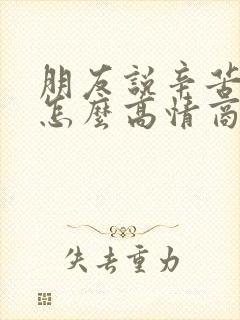 朋友說辛苦
怎麼高情商
失去重力